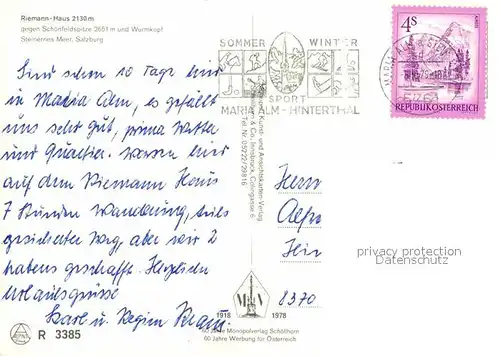 Riemann-Haus 2130 m
gegen Schönfeldspitze 2651 m und Wurmkopf
Steinernes Meer, Salzburg
Sind schon 10 Tage hier
in Maria Alm, es gefällt
uns sehr gut, prima Wetter
und Quartier. waren hier
auf dem Riemann Haus
7 Stunden Wanderung, teils
gesicherter Weg, aber wir 2
habens geschafft. Herzlichen
Urlaubsgrüsse
Karl u. Regina
R 3385
SOMMER WINTER
SPORT
MARIA ALM - HINTERTHAL
Kunst- und Ansichtskarten-Verlag
& Co., Innsbruck,
Tel. Nr. 05222/29816
4S
REPUBLIK ÖSTERREICH
Herrn
8370
privacy protection
Datenschutz
M V
1918 1978
60 Jahre Monopolverlag Schöllhorn
60 Jahre Werbung für Österreich